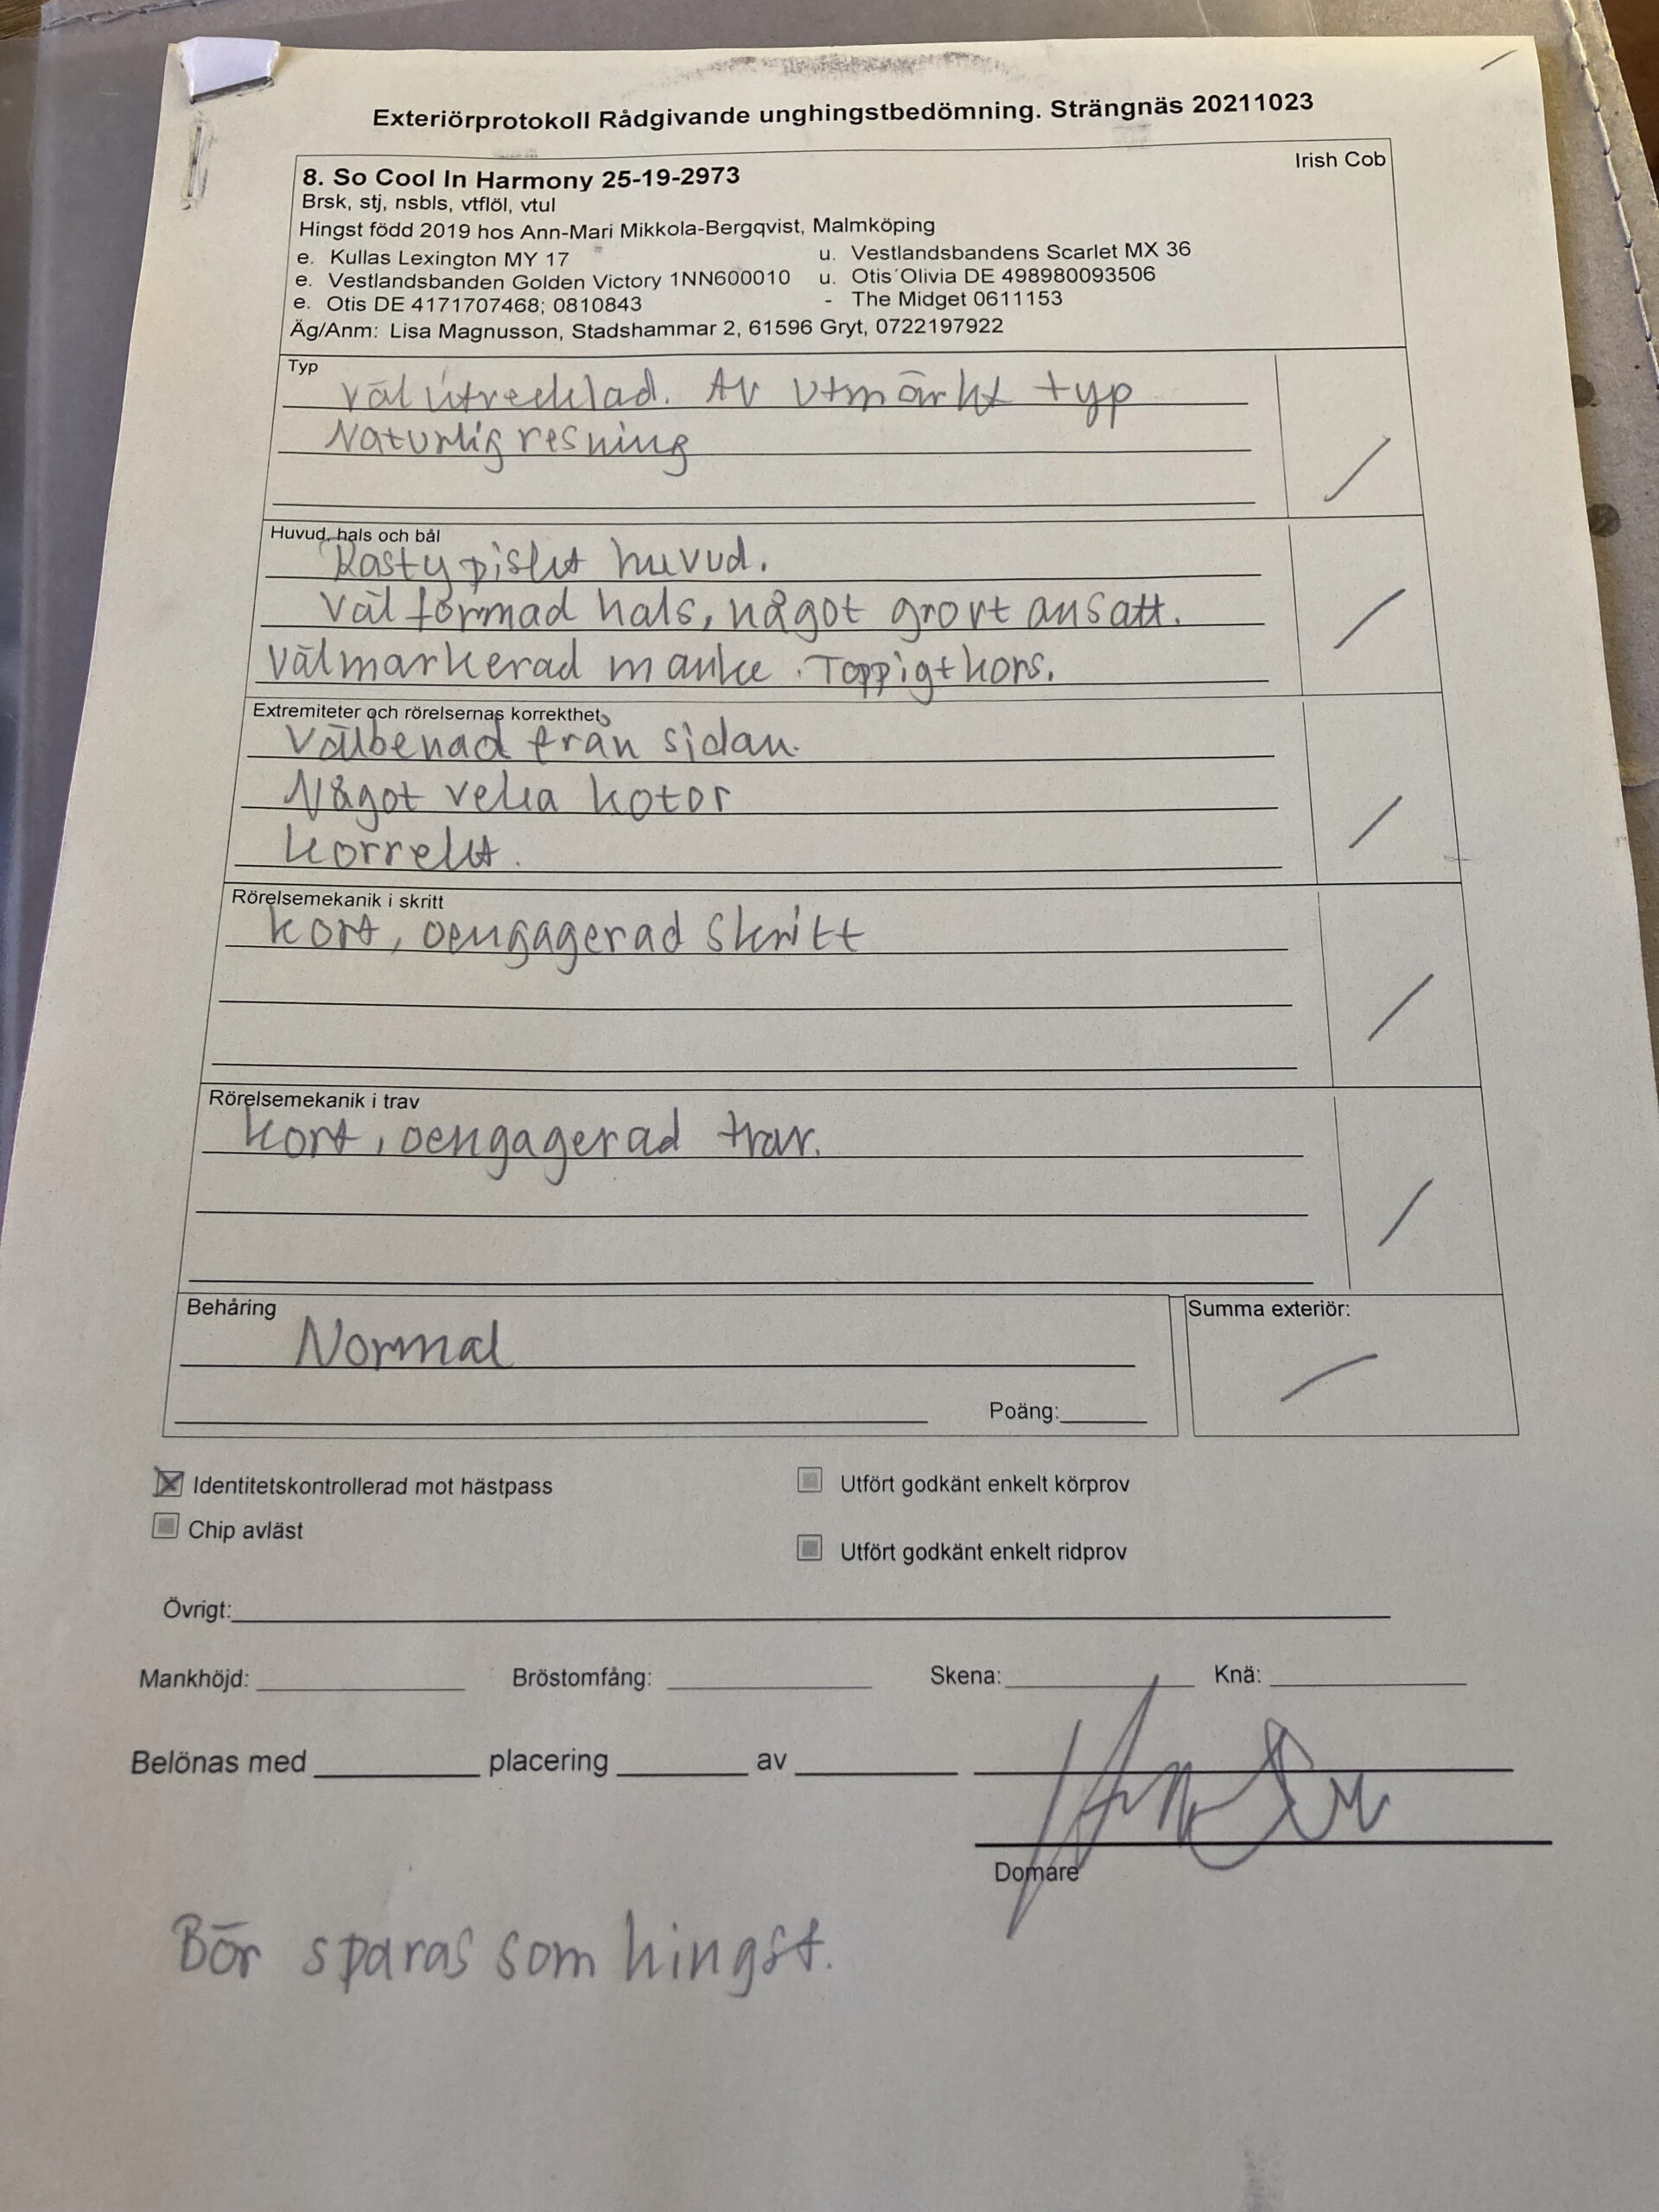 Exteriörprotokoll Rådgivande unghingstbedömning. Strängnäs 20211023
8. So Cool In Harmony 25-19-2973 Irish Cob
Brsk, stj, nsbls, vtflöl, vtul
Hingst född 2019 hos Ann-Mari Mikkola-Bergqvist, Malmköping
e. Kullas Lexington MY 17 u. Vestlandsbandens Scarlet MX 36
e. Vestlandsbanden Golden Victory 1NN600010 u. Otis´Olivia DE 498980093506
e. Otis DE 4171707468; 0810843 - The Midget 0611153
Äg/Anm: Lisa Magnusson, Stadshammar 2, 61596 Gryt, 0722197922
Typ
Väl utvecklad. Av utmärkt typ
Naturlig resning
Huvud, hals och bål
Rastypiskt huvud.
Väl formad hals, något grovt ansatt.
Välmarkerad manke. Toppigt kors.
Extremiteter och rörelsernas korrekthet
Välbenad från sidan.
Något veka kotor
Korrekt.
Rörelsemekanik i skritt
Kort, oengagerad skritt
Rörelsemekanik i trav
Kort, oengagerad trav.
Behåring Summa exteriör:
Normal
Poäng:
Identitetskontrollerad mot hästpass Utfört godkänt enkelt körprov
Chip avläst
Utfört godkänt enkelt ridprov
Övrigt:
Mankhöjd: Bröstomfång: Skena: Knä:
Belönas med placering av
Domare
Bör sparas som hingst.